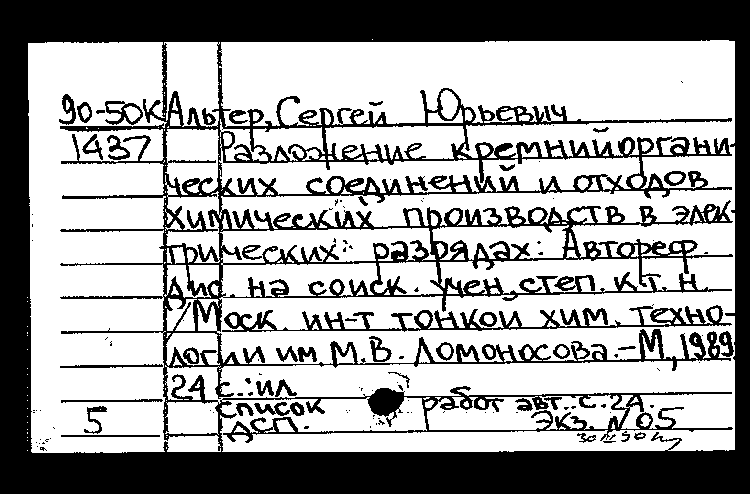 90-50К Альтер, Сергей Юрьевич.
1437 Разложение кремнийоргани-
ческих соединений и отходов
химических производств в элек-
трических разрядах: Автореф.
дис. на соиск. учен. степ. к.т.н.
/ Моск. ин-т тонкой хим. техно-
логии им. М.В. Ломоносова.-М., 1989
24 с.: ил
список работ авт.: с. 24.
5 ДСП. Экз. № 05